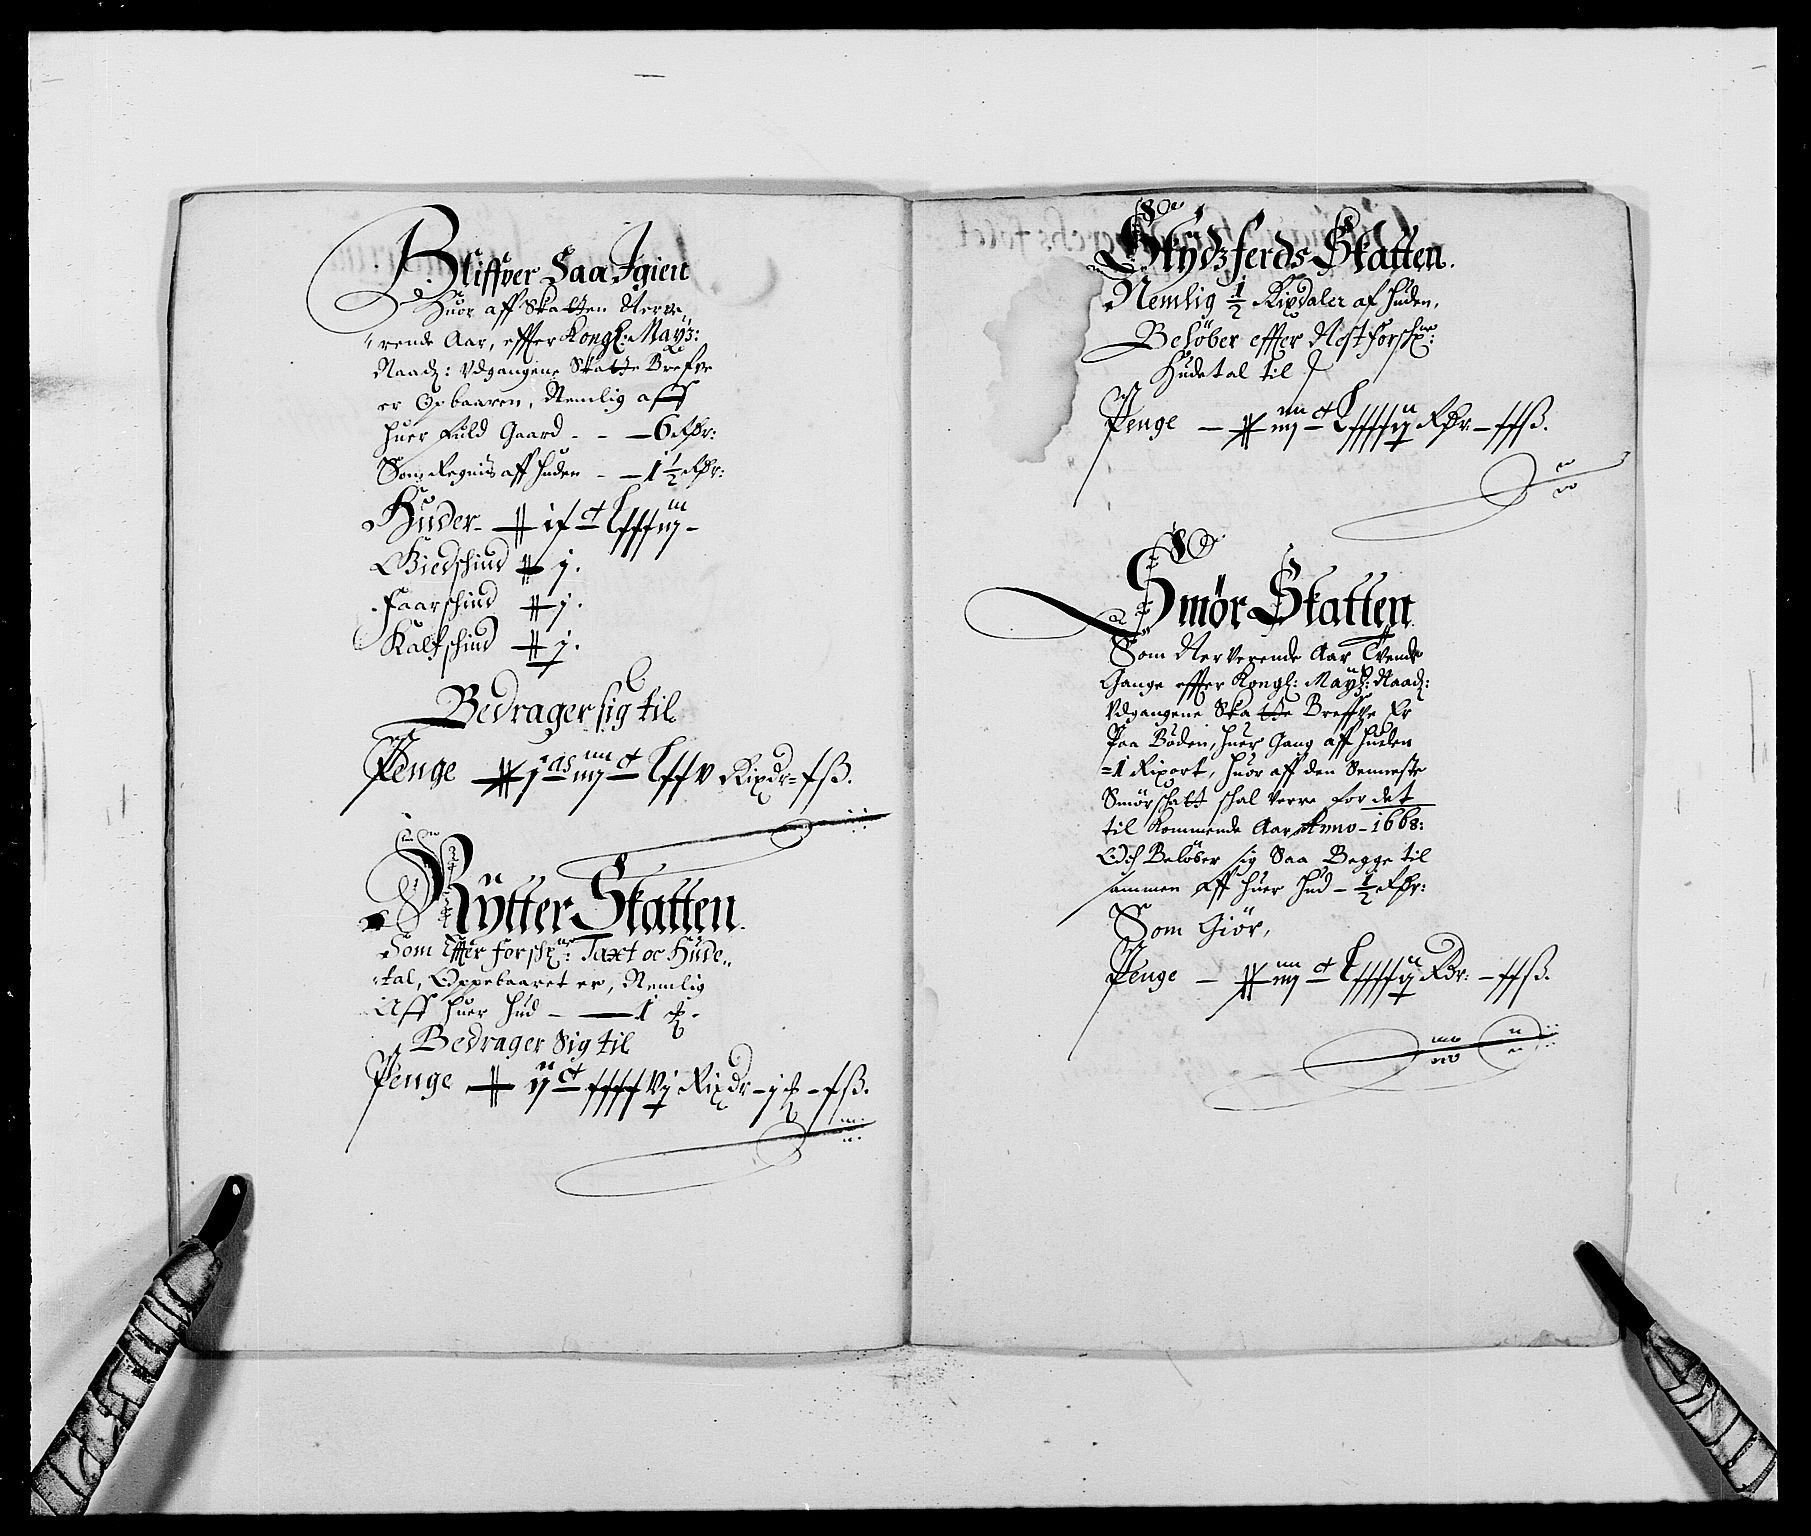 Bliffver Saa Igien
Huor aff Skatten Nerve,,
rende Aar, effter Kongl: Mayz:
Naadz: Vdgangene Skatte Brefve
er Opbaaren, Nemlig aff
huer Fuld Gaard - - — 6 Rdr:
Som Regnis aff huden - — 1 1/2 Rdr:
Huder
Giedschind — j.
Faarschind — j.
Kalfschind — j.
Bedrager sig til
Penge
Rytter Skatten.
Som Effter forschr: Taxt oc Hude,,
tal, Oppebaaret er, Nemlig
Aff huer Hud - — 1
Bedrager Sig til
Penge
Skydzferds Skatten.
Nemlig 1/2 Rixdaler af huden,
Beløber effter Nestforschr:
Hudetal til
Penge
Smør Skatten
Som Nerverende Aar Tvende
Gange effter Kongl: Mayz: Naadz:
Vdgangene Skatte Breffve Er
Paa Bøden, huer Gang aff huden
- 1 Rixort, huor aff den Senneste
Smørschatt schal Verre for det
til Kommende Aar Anno - 1668:
Och Beløber sig Saa Begge til
sammen aff huer Hud - 1/2 Rdr:
Som Giør,
Penge